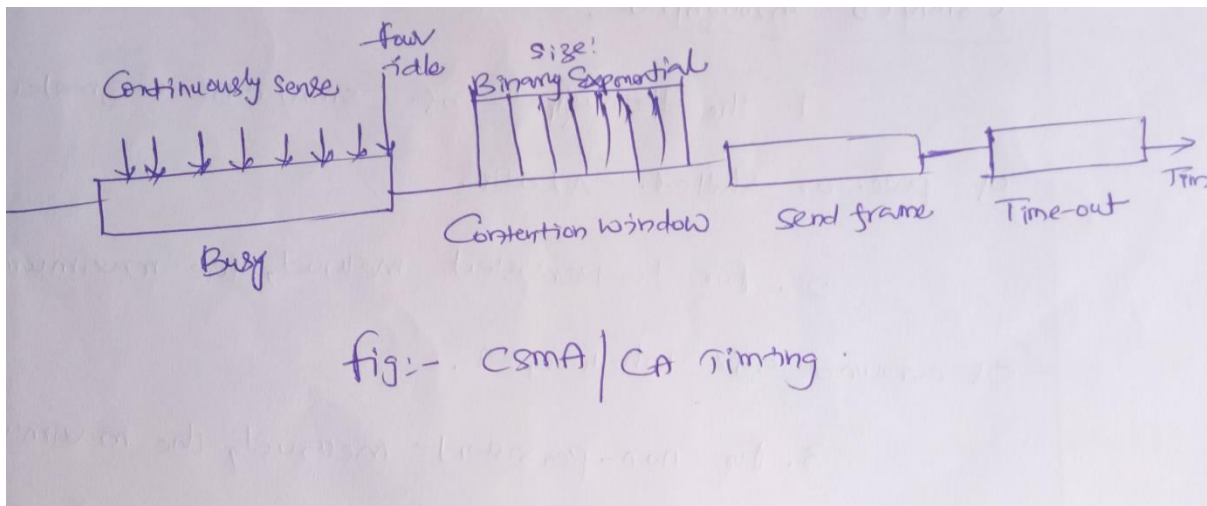 four
idle
Continuously sense
size:
Binary Exponential
Busy
Contention window
Send frame
Time-out
fig:- CSMA/CA Timting.